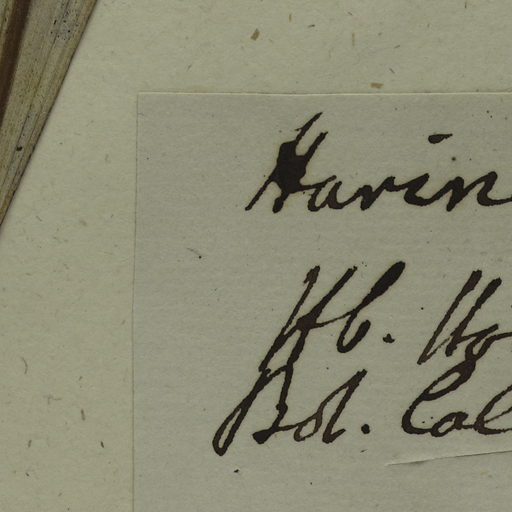 Harin
Hb. Ho
Bot. Cal